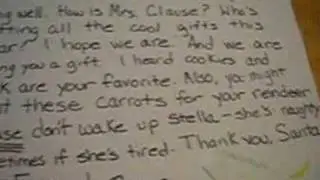 ng well. How is Mrs. Clause? Who's
tting all the cool gifts this
ar? I hope we are. And we are
ng you a gift. I heard cookies and
k are your favorite. Also, ya might
t these carrots for your reindeer
ase don't wake up stella - she's naughty
etimes if she's tired. Thank you, Santa